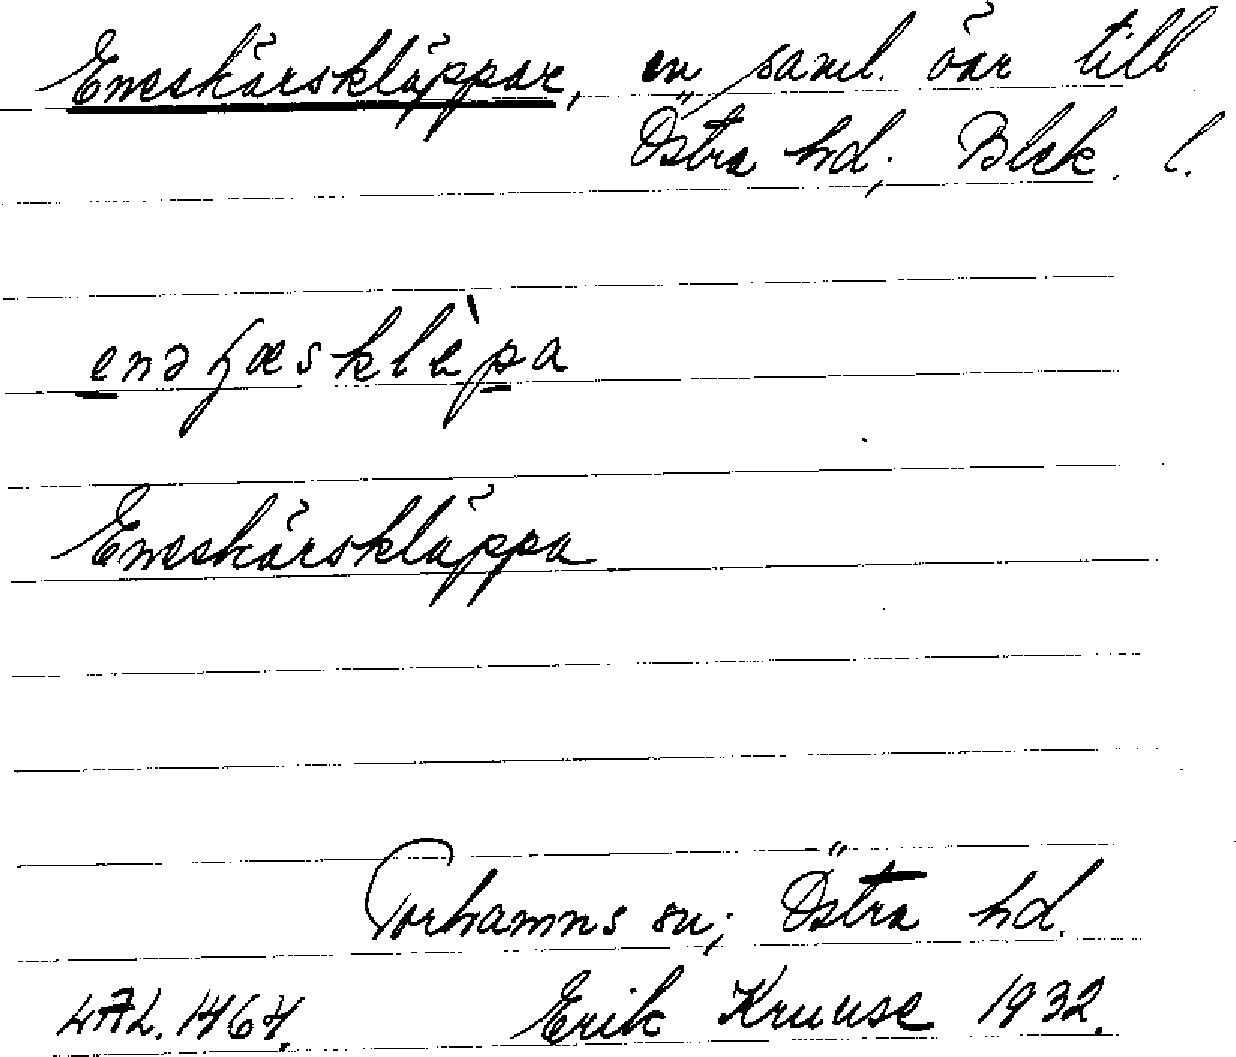 Eneskärskläppar, en saml. öar till
Östra hd; Blek. l.
Eneskärskläppa
Torhamns sn; Östra hd.
LAL. 1464. Erik Kruuse 1932.